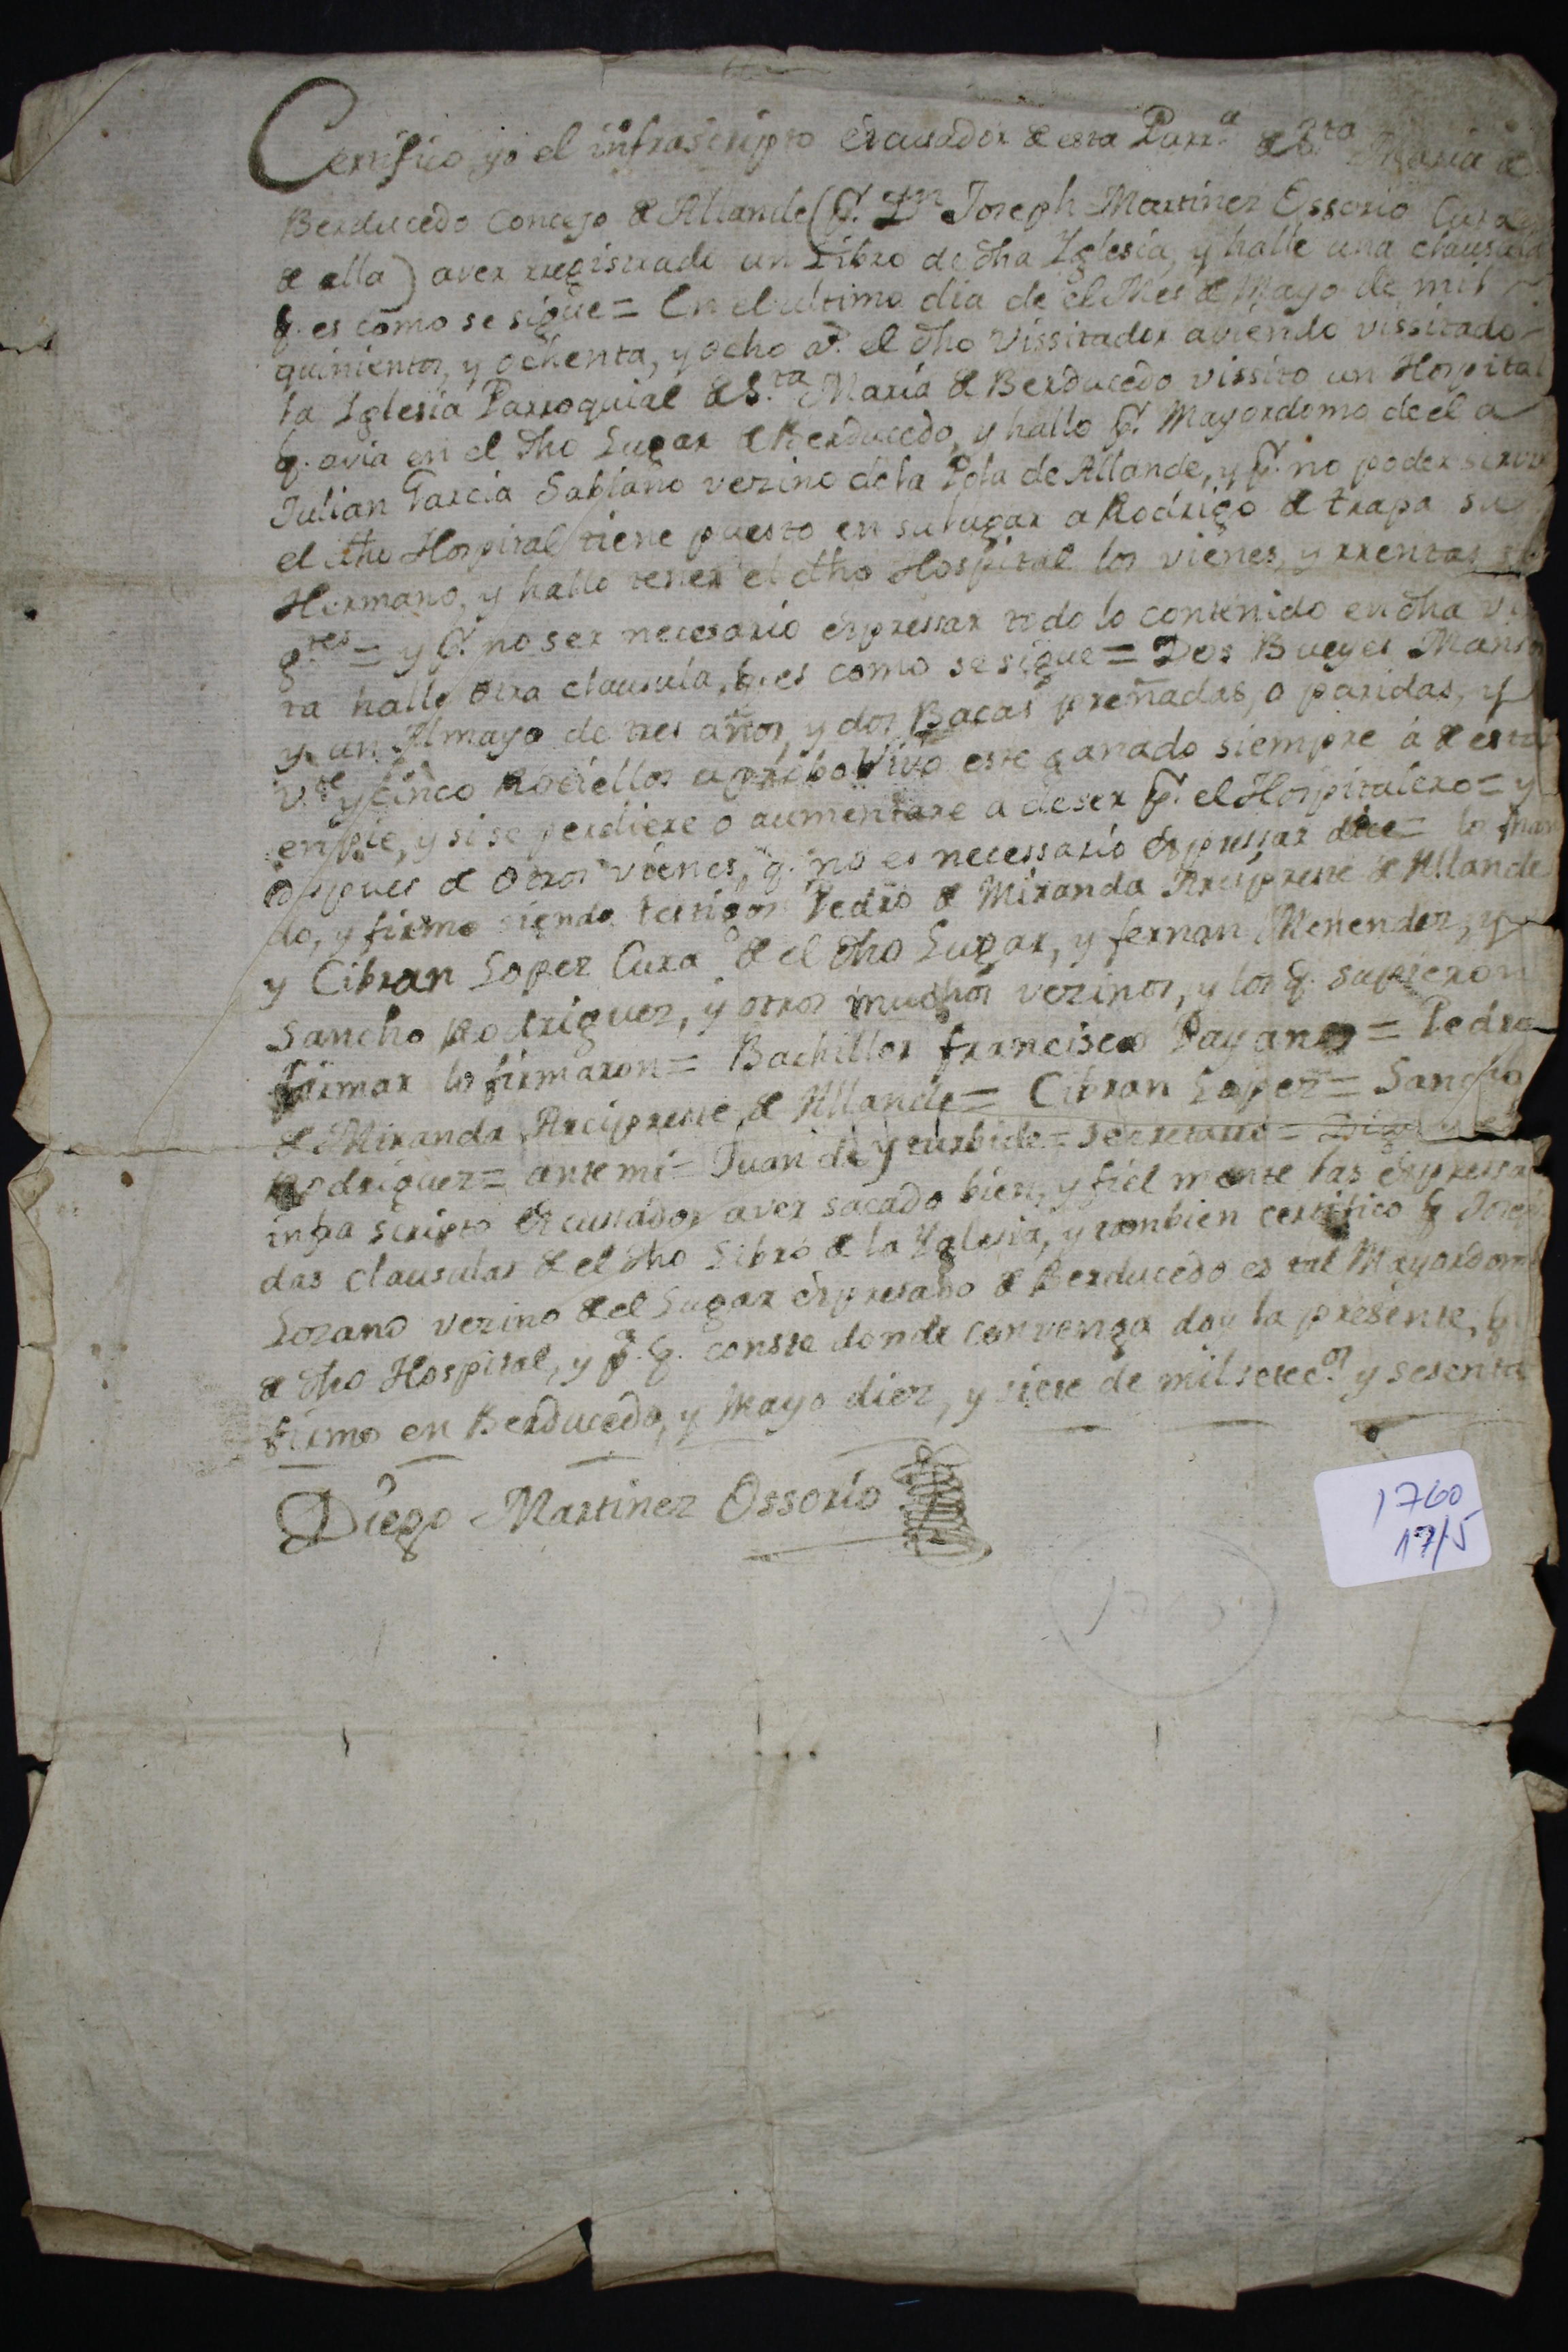 Certifico yo el infrascripto Excusador de esta Parr.ª de S.ta Maria de
Berducedo Concejo de Allande (pr. Dn Joseph Martinez Ossorio Cura
de ella) aver rregistrado un Libro de dha Yglesia, y halle una clausula
q. es como se sigue = En el ultimo dia de el Mes de Mayo de mil
quinientos, y ochenta, y ocho a.s el dho Vissitador aviendo vissitado
la Yglesia Parroquial de S.ta Maria de Berducedo vissito un Hospital
q. avia en el dho Lugar de Berducedo, y hallo pr. Mayordomo de el a
Julian Garcia Sablano vezino de la Pola de Allande, y pr. no poder servir
el dho Hospital tiene puesto en su lugar a Rodrigo de trapa su
Hermano, y hallo tener el dho Hospital los vienes, y rrentas
g.tes = y pr. no ser necesario expressar todo lo contenido en dha vi
ta halle otra clausula, q. es como se sigue = Dos Bueyes Mansos
y un Almayo de tres años, y dos Bacas preñadas, o paridas, y
v.te y cinco Rociellos este ganado siempre á de estar
en pie, y si se perdiere o aumentare a de ser pr. el Hospitalero = y
despues de otros vienes, q. no es necessario expressar dice = lo man
do, y firmo siendo testigos Pedro de Miranda Arcipreste de Allande
y Cibran Lopez Cura de el dho Lugar, y fernan Menendez, y
Sancho Rodriguez, y otros muchos vezinos, y los q. supieron
firmar lo firmaron = Bachiller francisco Payano = Pedro
de Miranda Arcipreste de Allande = Cibran Lopez = Sancho
Rodriguez = ante mi = Juan de Yturbide = secretario = Digo yo el
infra scripto Excusador aver sacado bien, y fiel mente las expressa
das clausulas de el dho Libro de la Yglesia, y tambien certifico q Joseph
Lozano vezino de el Lugar expresado de Berducedo es tal Mayordomo
de dho Hospital, y p.ª q. conste donde convenga doy la presente, q.
firmo en Berducedo, y Mayo diez, y siete de mil setec.os y sesenta
Diego Martinez Ossorio
1760
17/5